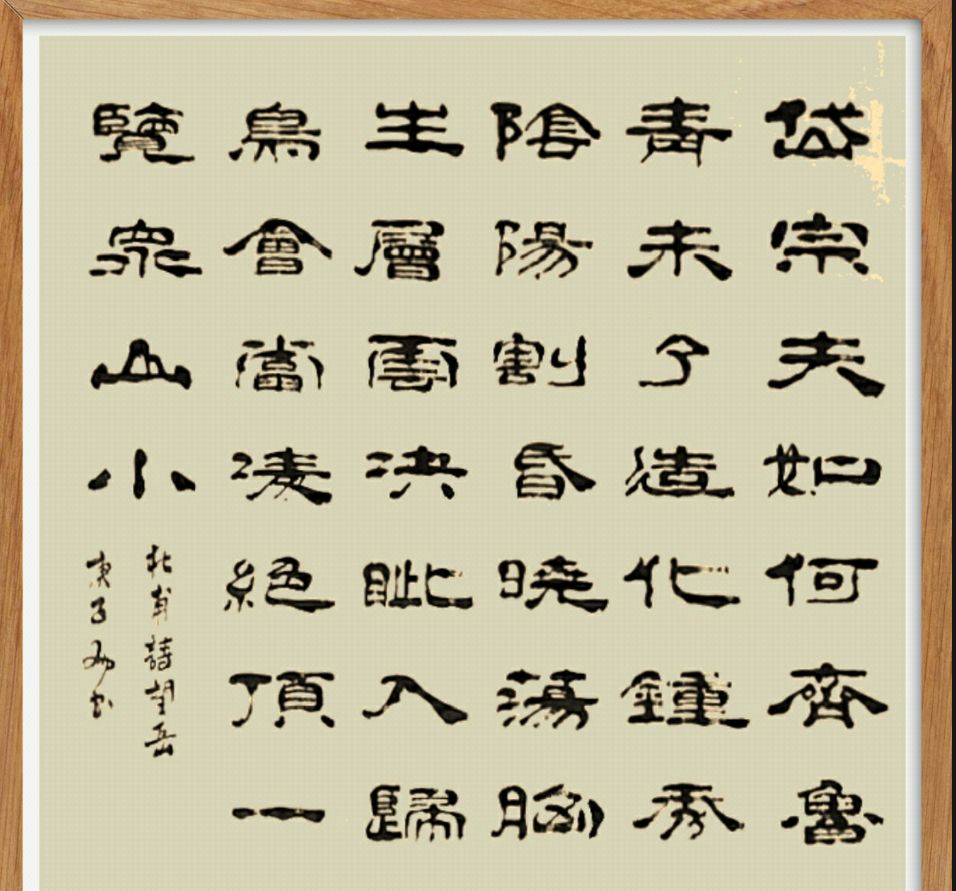 岱宗夫如何齊魯
青未了造化鍾秀
陰陽割昏曉蕩胸
生層雲决眦入歸
鳥會當凌絶頂一
覽衆山小
杜甫詩望岳
庚子书